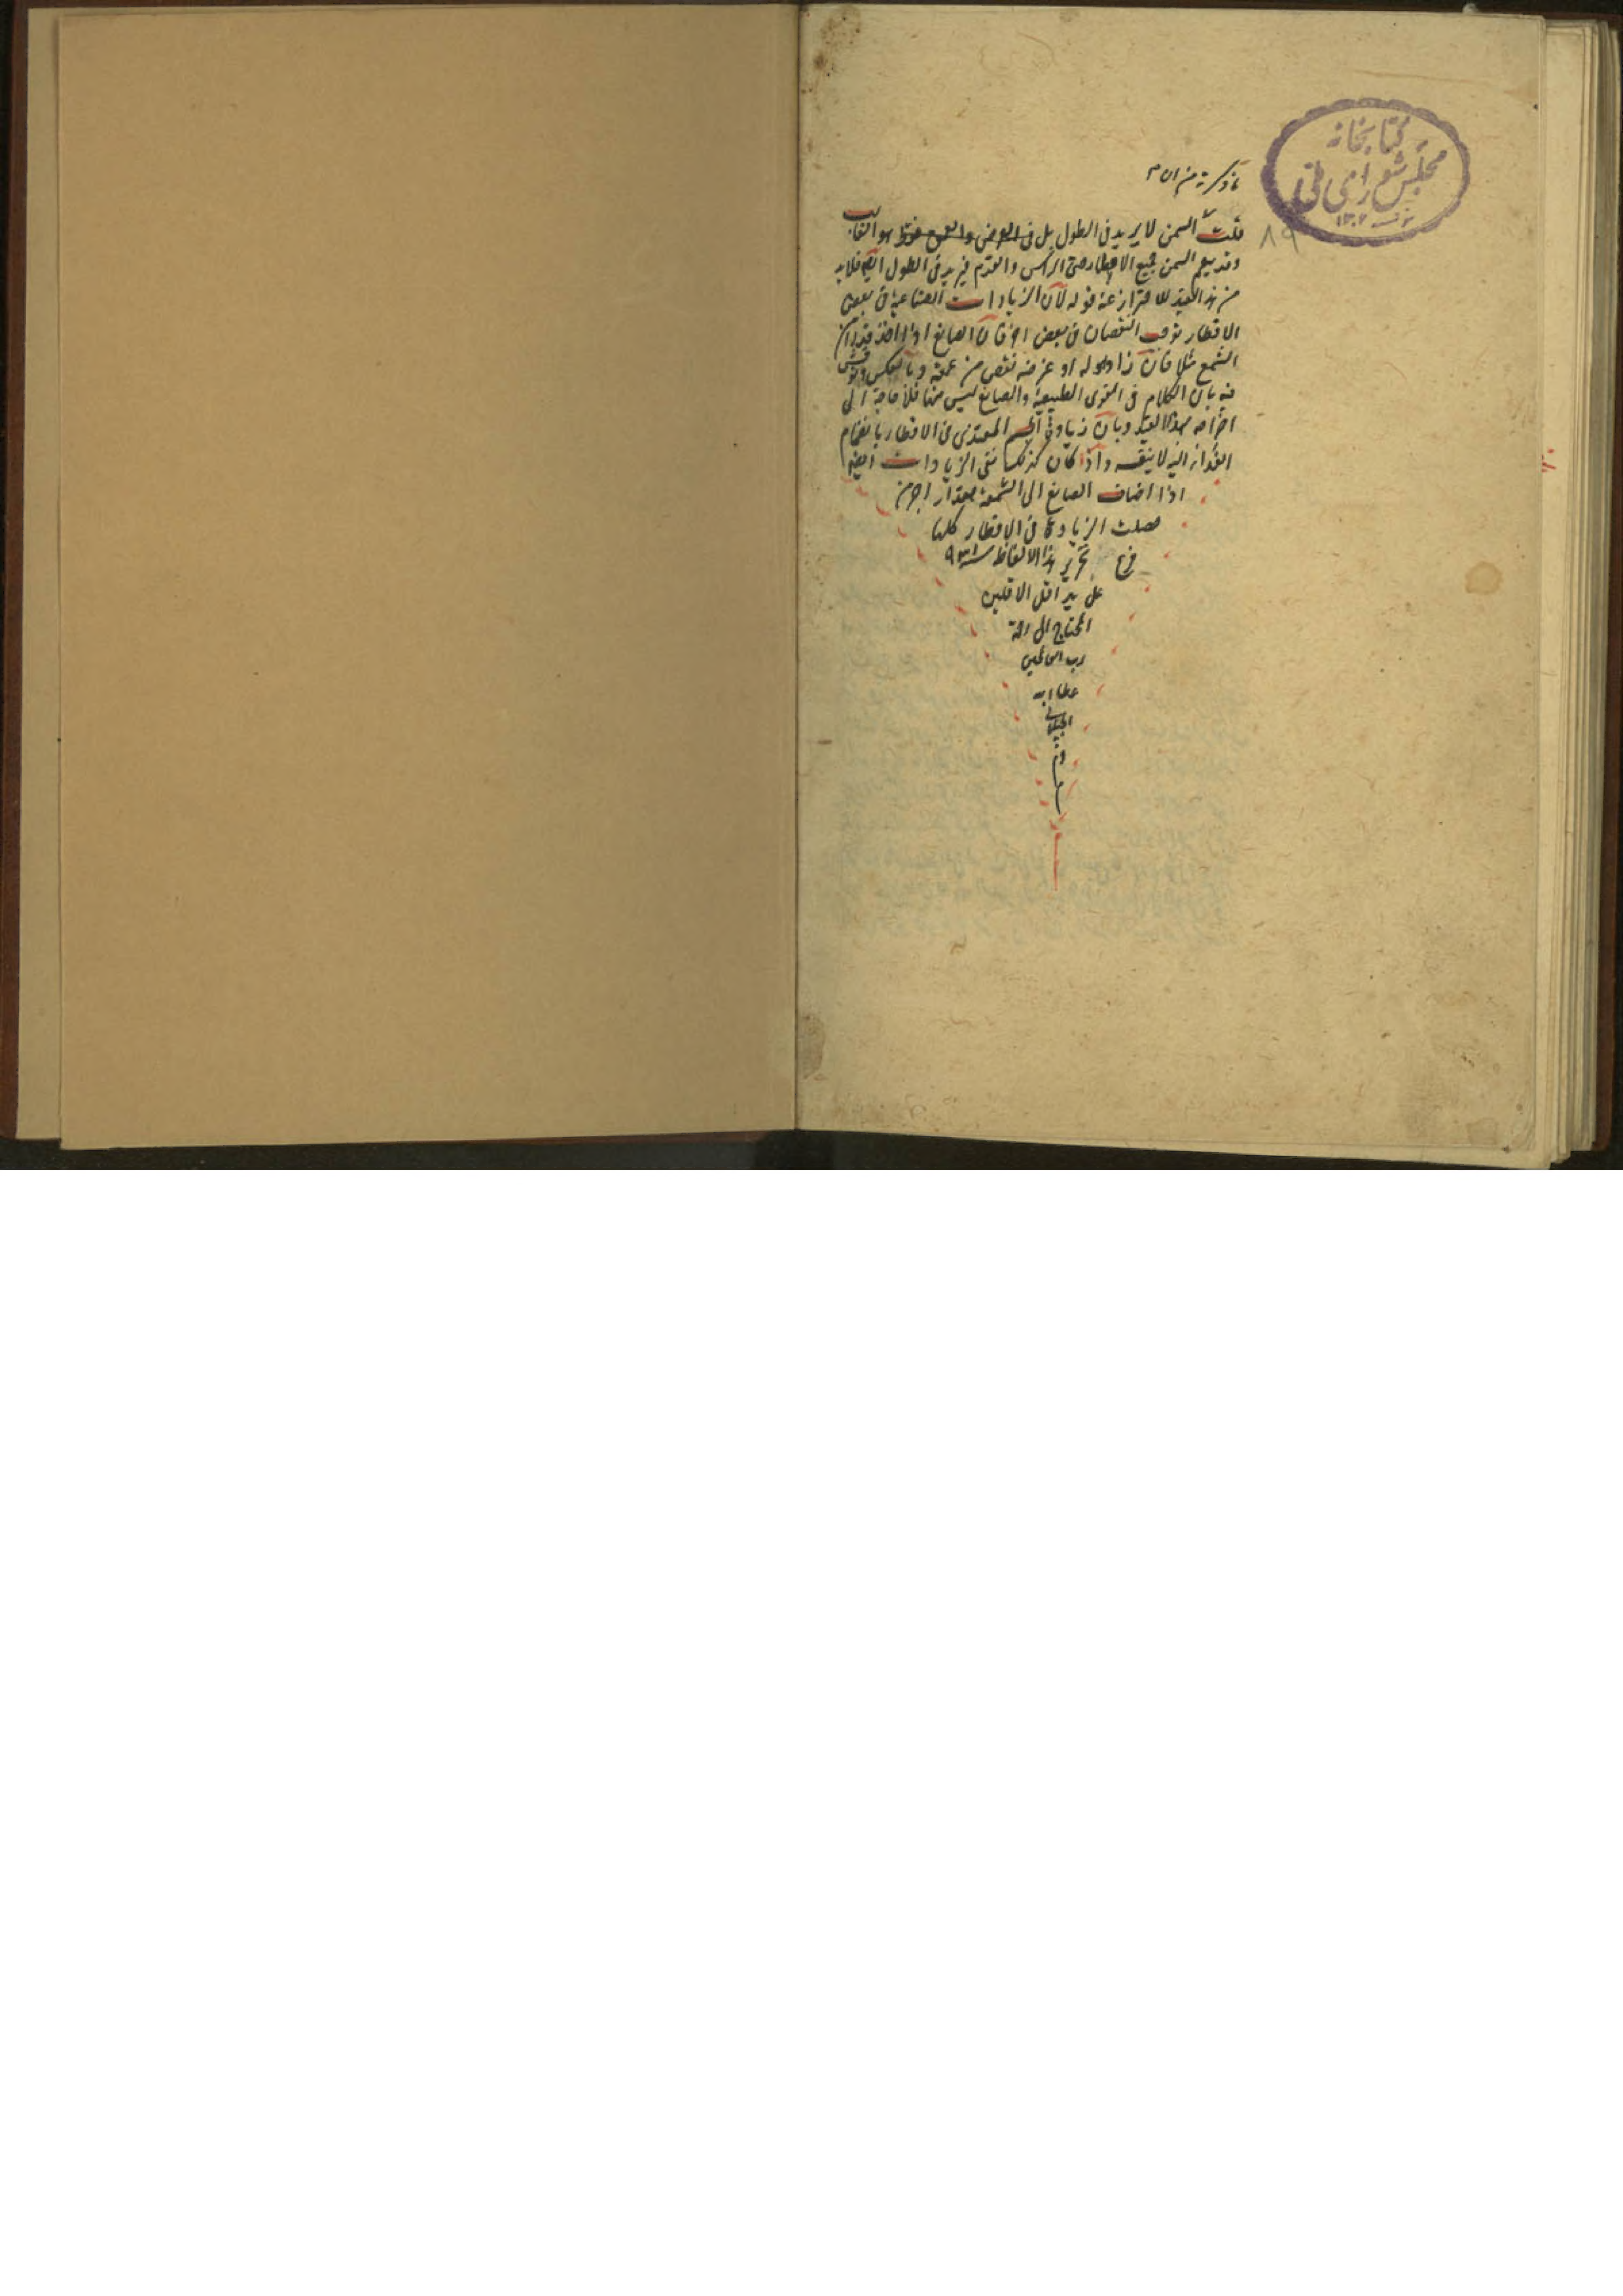 كتابخانه
مجلس شورای ملی
١٣٠٢
٨٩
قلت السمن لا يزيد في الطول بل في العرض والعمق فقط هو الغالب
وقد يعم السمن جميع الاقطار حتى الراس والقدم فيزيد في الطول ايضا فلا بد
من هذا القيد للاحتراز عنه قوله لان الزيادات الصناعية في بعض
الاقطار توجب النقصان في بعض اخر فان الصانع اذا اخذ قدرا من
الشمع مثلا فان زاد طوله او عرضه نقص من عمقه وبالعكس ونوقش
فيه بان الكلام في القوى الطبيعية والصانع ليس منها فلا حاجة الى
اخراجه بهذا القيد وبان زيادة الجسم المغتذي في الاقطار بانضمام
الغذاء اليه لا بنفسه واذا كان كذلك الزيادات ايضا
اذا اضاف الصانع الى الشمعة مقدارا اخر من
حصلت الزيادة في الاقطار كلها
فرغ تحرير هذا الالفاظ سنة ٩٣١
على يد اقل الاقلين
المحتاج الى رحمة
رب العالمين
عطاء الله
الجيلاني